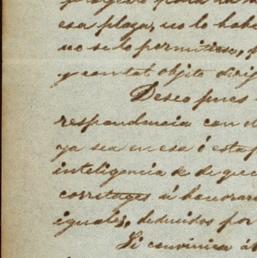 esa plaza, no lo habe
no se lo permitiese, p
y con tal objeto dirij
Deseo pues
respondencia con d
ya sea en esa ó esta p
inteligencia de que
corretages ú honorar
iguales, deducidos por
Si conviniera á